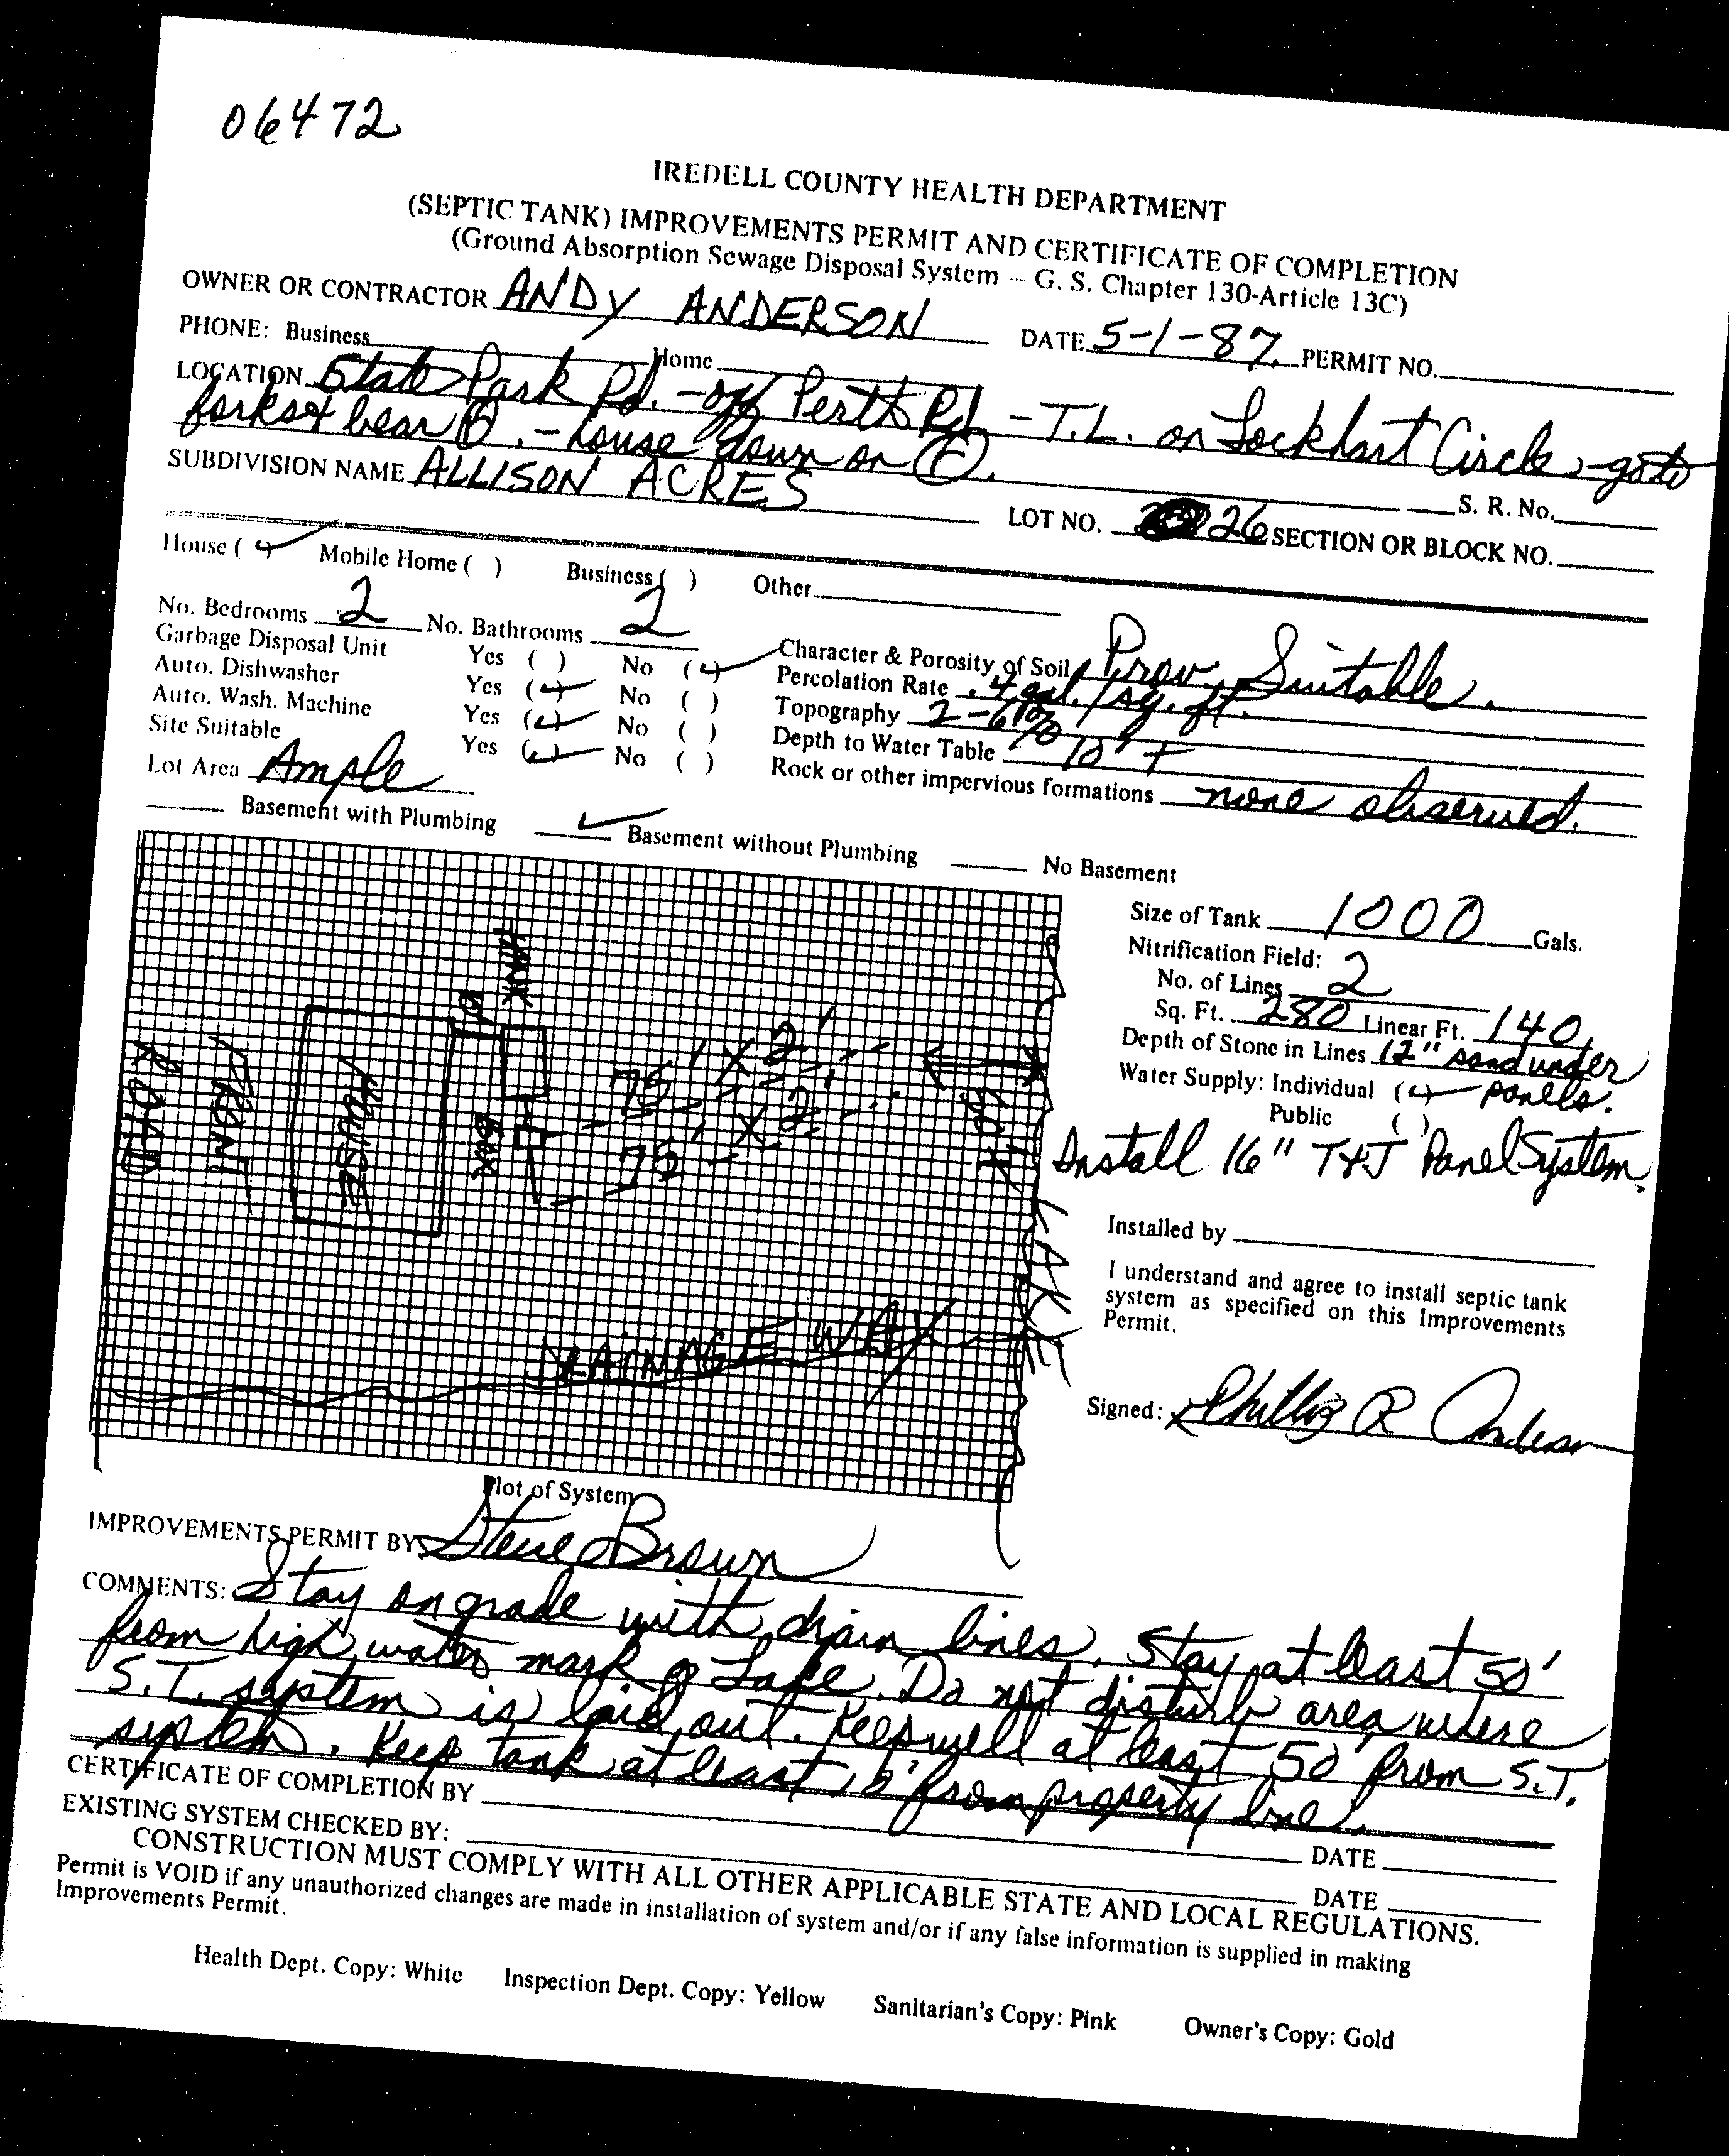 06472
IREDELL COUNTY HEALTH DEPARTMENT
(SEPTIC TANK) IMPROVEMENTS PERMIT AND CERTIFICATE OF COMPLETION
(Ground Absorption Sewage Disposal System — G. S. Chapter 130-Article 13C)
OWNER OR CONTRACTOR ANDY ANDERSON DATE 5-1-87 PERMIT NO.
PHONE: Business Home
LOCATION State Park Rd. - off Perth Rd. - T.L. on Lockhart Circle, - go to
forks & bear R. - house down on R.
S. R. No.
SUBDIVISION NAME ALLISON ACRES LOT NO. 26 SECTION OR BLOCK NO.
House (✓) Mobile Home ( ) Business ( ) Other
No. Bedrooms 2 No. Bathrooms 2
Garbage Disposal Unit Yes ( ) No (✓)
Auto. Dishwasher Yes (✓) No ( )
Auto. Wash. Machine Yes (✓) No ( )
Site Suitable Yes (✓) No ( )
Lot Area Ample
Character & Porosity of Soil Prov. Suitable.
Percolation Rate .4 gal./sq. ft.
Topography 2-6%
Depth to Water Table 10' +
Rock or other impervious formations none observed.
Basement with Plumbing ✓ Basement without Plumbing No Basement
ROAD
FRONT
HOUSE
TANK
BOX
75' X 2'
75' X 2'
50' +
LAKE
DRAINAGE WAY
Plot of System
Size of Tank 1000 Gals.
Nitrification Field:
No. of Lines 2
Sq. Ft. 280 Linear Ft. 140
Depth of Stone in Lines 12" sand under
panels.
Water Supply: Individual (✓)
Public ( )
Install 16" T&J Panel System.
Installed by
I understand and agree to install septic tank
system as specified on this Improvements
Permit.
Signed: Phillip R Anderson
IMPROVEMENTS PERMIT BY Steve Brown
COMMENTS: Stay on grade with drain lines. Stay at least 50'
from high water mark of Lake. Do not disturb area where
S.T. system is laid out. Keep well at least 50' from S.T.
system. Keep tank at least 10' from property line.
CERTIFICATE OF COMPLETION BY DATE
EXISTING SYSTEM CHECKED BY: DATE
CONSTRUCTION MUST COMPLY WITH ALL OTHER APPLICABLE STATE AND LOCAL REGULATIONS.
Permit is VOID if any unauthorized changes are made in installation of system and/or if any false information is supplied in making
Improvements Permit.
Health Dept. Copy: White Inspection Dept. Copy: Yellow Sanitarian's Copy: Pink Owner's Copy: Gold